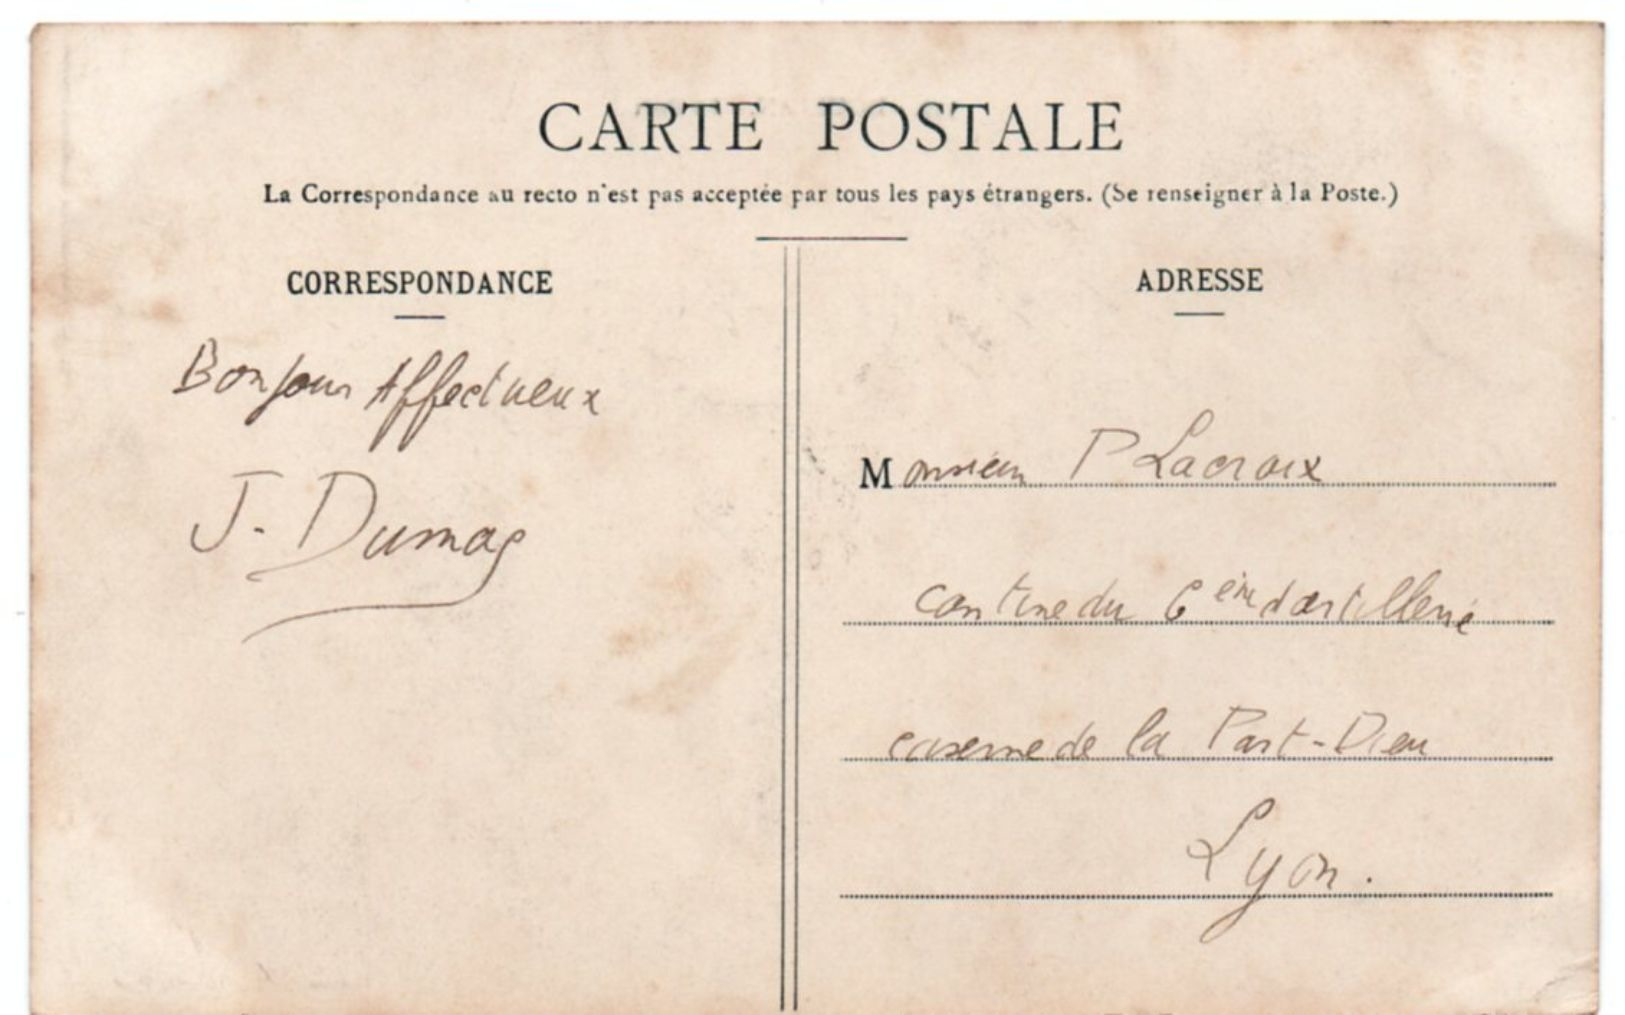 CARTE POSTALE
La Correspondance au recto n'est pas acceptée par tous les pays étrangers. (Se renseigner à la Poste.)
CORRESPONDANCE
Bonjour Affectueux
J. Dumas
ADRESSE
Monsieur P Lacroix
cantine du 6ème d'artillerie
caserne de la Part-Dieu
Lyon.